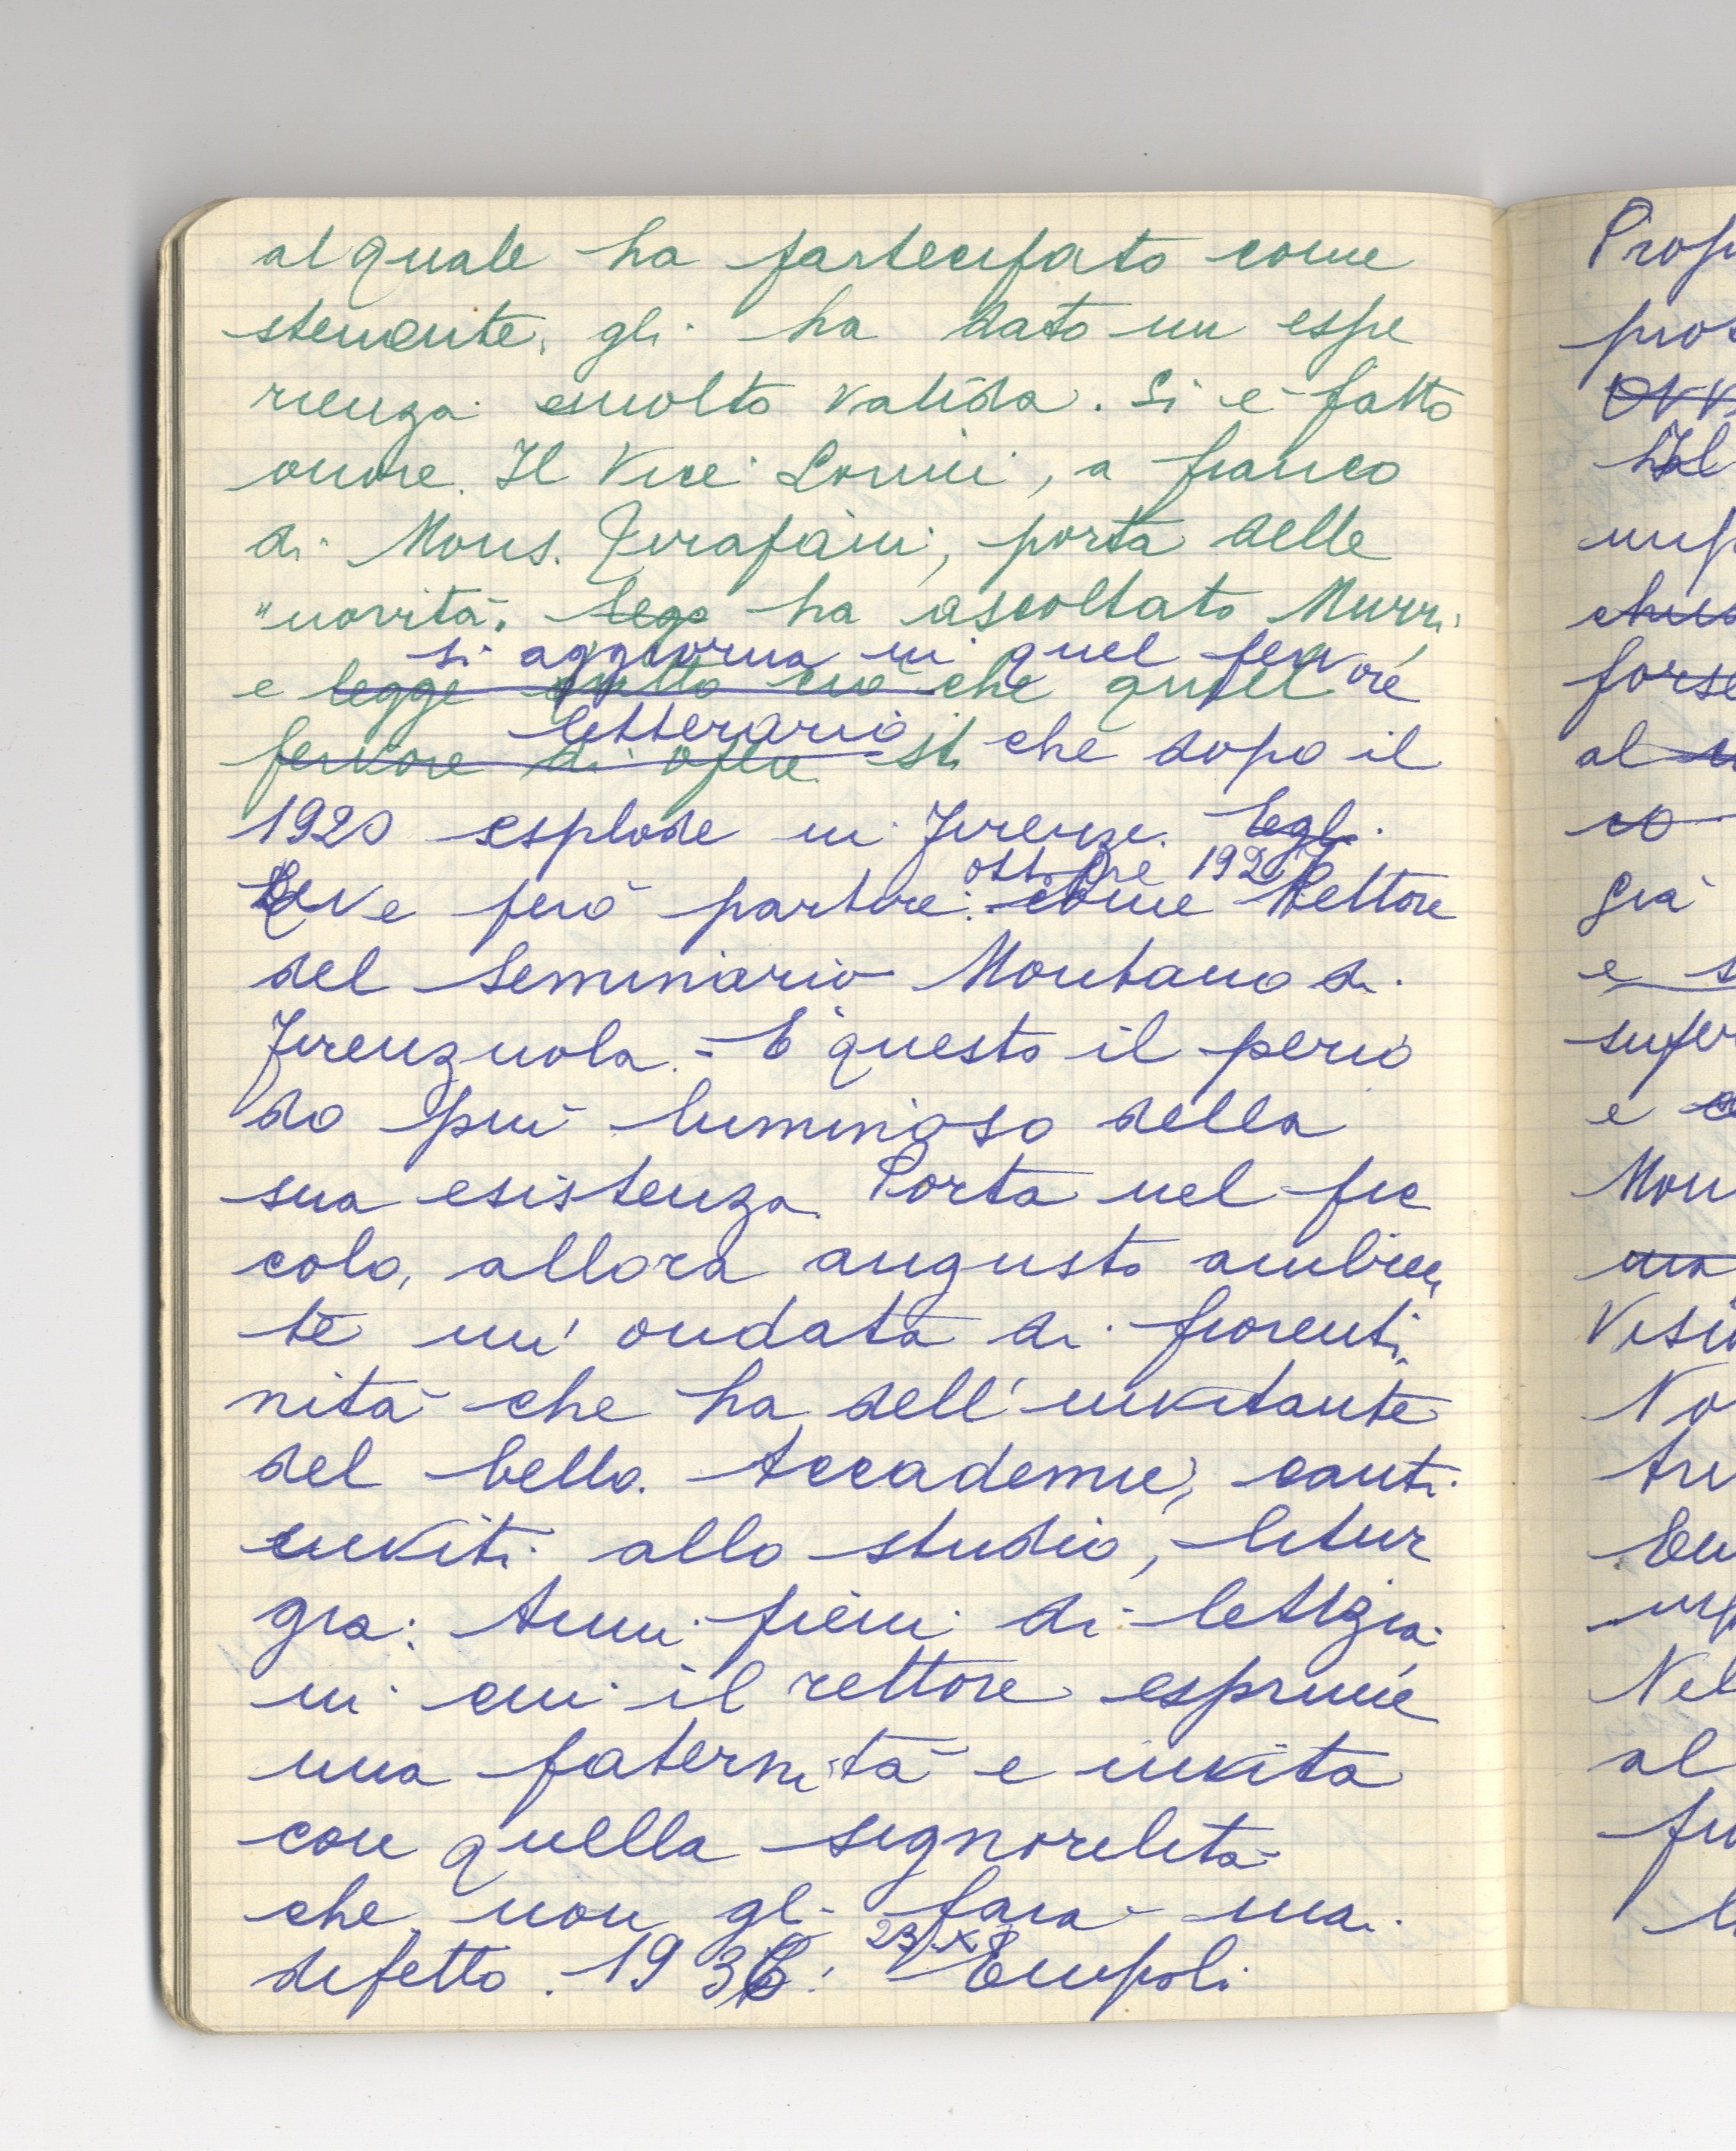 al quale ha partecipato come
stenente, gli ha dato un espe
rienza molto valida. Si è fatto
onore. Il Vice Lorini, a fianco
di Mons. Tirapani, porta delle
"novità. lego ha ascoltato Murri
si aggiorna in quel fervore
e legge tutto ciò che quel
letterario
fervore di che dopo il
1920 esplode in Firenze. Egli
ottobre 192
Deve però partire: come Rettore
del Seminario Montano di
Firenzuola. - È questo il perio
do più luminoso della
sua esistenza. Porta nel pic
colo, allora angusto ambien
te un' ondata di fiorenti
nità che ha dell'invitante
del bello. Accademie, canti
inviti allo studio, litur
gia: Anni pieni di letizia
in cui il rettore esprime
una paternità e invita
con quella signorilità
che non gli farà mai
23/X
difetto. 1936: Empoli
Prop
pros
Hal
forse
al
già
e s
super
e
Mon
Visi
No
Nel
al